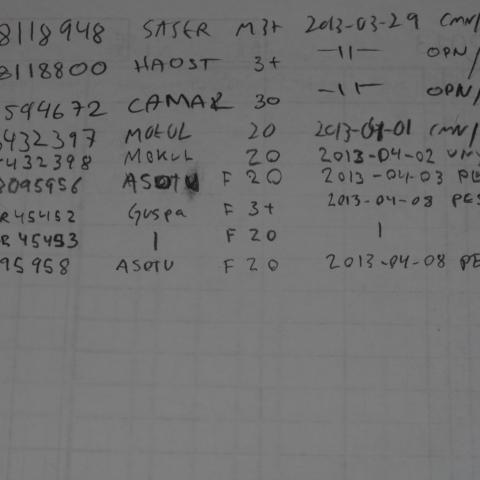 8118948 SASER M 3+ 2013-03-29 CMN/
8118800 HAOST 3+ —11— OPN/
594672 CAMAR 30 —11— OPN/
432397 MOKUL 20 2013-04-01 CMN/
432398 MOKUL 20 2013-04-02
095956 ASOTU F 20 2013-04-03 PE
R45452 Guspa F 3+ 2013-04-08 PES
R45453 | F 20 |
95958 ASOTU F 20 2013-04-08 PE